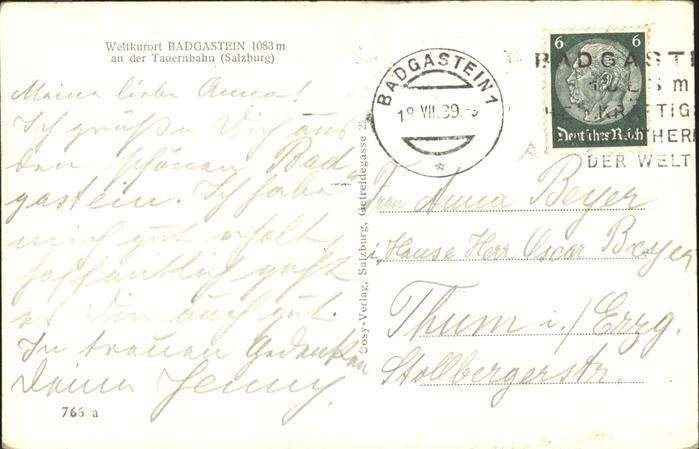 Weltkurort BADGASTEIN 1083 m
an der Tauernbahn (Salzburg)
Meine liebe Anna!
Ich grüße Dich aus
dem schönen Bad
gastein. Ich habe
mich gut erholt
hoffentlich geht
es Dir auch gut.
In treuen Gedenken
Deine Jenny
766 a
Cosy-Verlag, Salzburg, Getreidegasse 22
BADGASTEIN 1
18 VII. 39
6 6
Deutsches Reich
BADGASTEI
1083 m
KRÄFTIG
THER
DER WELT
Frau Anna Beyer
i. Hause Herr Oscar Beyer
Thum i./Erzg.
Stollbergerstr.